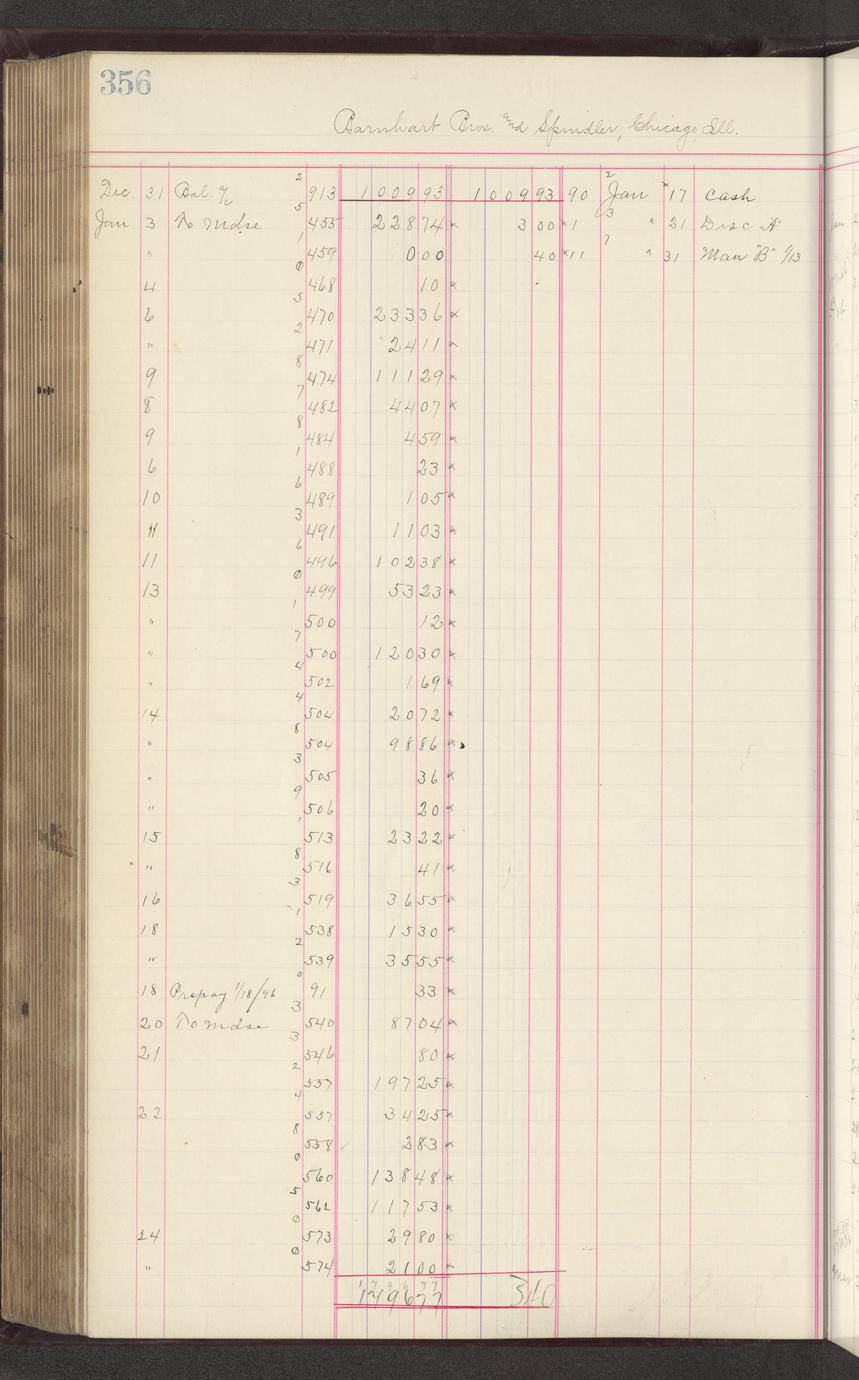 356
Barnhart Bros. and Spindler, Chicago, Ill.
Dec. 31 Bal. 2 913 1 009 93 1 009 93 90 2 Jan "17 Cash
Jan 3 To Mdse 5 455 228 74 x 3 00 x 1 3 " 21 Disc "A"
" 1 459 0 00 40 x 11 7 " 31 Man "B" 1/13
4 0 468 10 x
6 5 470 233 36 x
" 2 471 24 11 x
9 8 474 111 29 x
8 7 482 44 07 x
9 8 484 4 59 x
6 1 488 23 x
10 6 489 1 05 x
11 3 491 11 03 x
11 6 496 102 38 x
13 0 499 53 23 x
" 1 500 12 x
" 7 500 120 30 x
" 4 502 1 69 x
14 4 504 20 72 x
" 8 504 98 86 x
" 3 505 36 x
" 9 506 20 x
15 1 513 23 22 x
" 8 516 41 x
16 3 519 36 55 x
18 1 538 15 30 x
" 2 539 35 55 x
18 Prepay 1/18/96 0 91 33 x
20 To Mdse 3 540 87 04 x
21 3 546 80 x
2 557 197 25 x
22 4 557 34 25 x
8 558 2 83 x
0 560 138 48 x
5 561 117 53 x
24 0 573 29 80 x
" 0 574 21 00 x
1 496 77 3 40